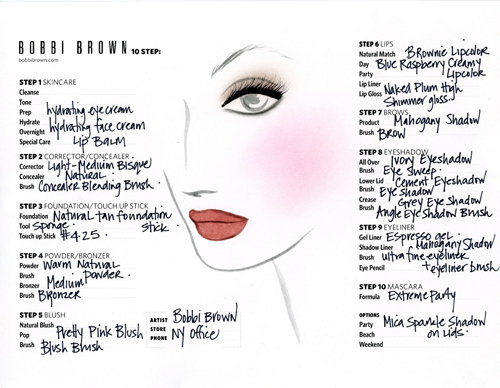 BOBBI BROWN 10 STEP:
bobbibrown.com
STEP 1 SKINCARE
Cleanse
Tone
Prep hydrating eye cream
Hydrate hydrating face cream
Overnight
Special Care Lip Balm
STEP 2 CORRECTOR/CONCEALER
Corrector Light-Medium Bisque
Concealer Natural
Brush Concealer Blending Brush
STEP 3 FOUNDATION/TOUCH UP STICK
Foundation Natural tan foundation
Tool sponge stick
Touch up Stick #4.25
STEP 4 POWDER/BRONZER
Powder Warm Natural
Brush Powder
Bronzer Medium
Brush Bronzer
STEP 5 BLUSH
Natural Blush
Pop Pretty Pink Blush
Brush Blush Brush
ARTIST Bobbi Brown
STORE NY Office
PHONE
STEP 6 LIPS
Natural Match Brownie Lipcolor
Day Blue Raspberry Creamy
Party Lipcolor
Lip Liner Naked Plum High
Lip Gloss Shimmer gloss
STEP 7 BROWS
Product Mahogany Shadow
Brush Brow
STEP 8 EYESHADOW
All Over Ivory Eyeshadow
Brush Eye Sweep
Lower Lid Cement Eyeshadow
Brush Eye Shadow
Crease Grey Eye Shadow
Brush Angle Eye Shadow Brush
STEP 9 EYELINER
Gel Liner Espresso gel
Shadow Liner Mahogany Shadow
Brush Ultra fine eyeliner
Eye Pencil + eyeliner brush
STEP 10 MASCARA
Formula Extreme Party
OPTIONS
Party Mica Sparkle Shadow
Beach on Lids
Weekend